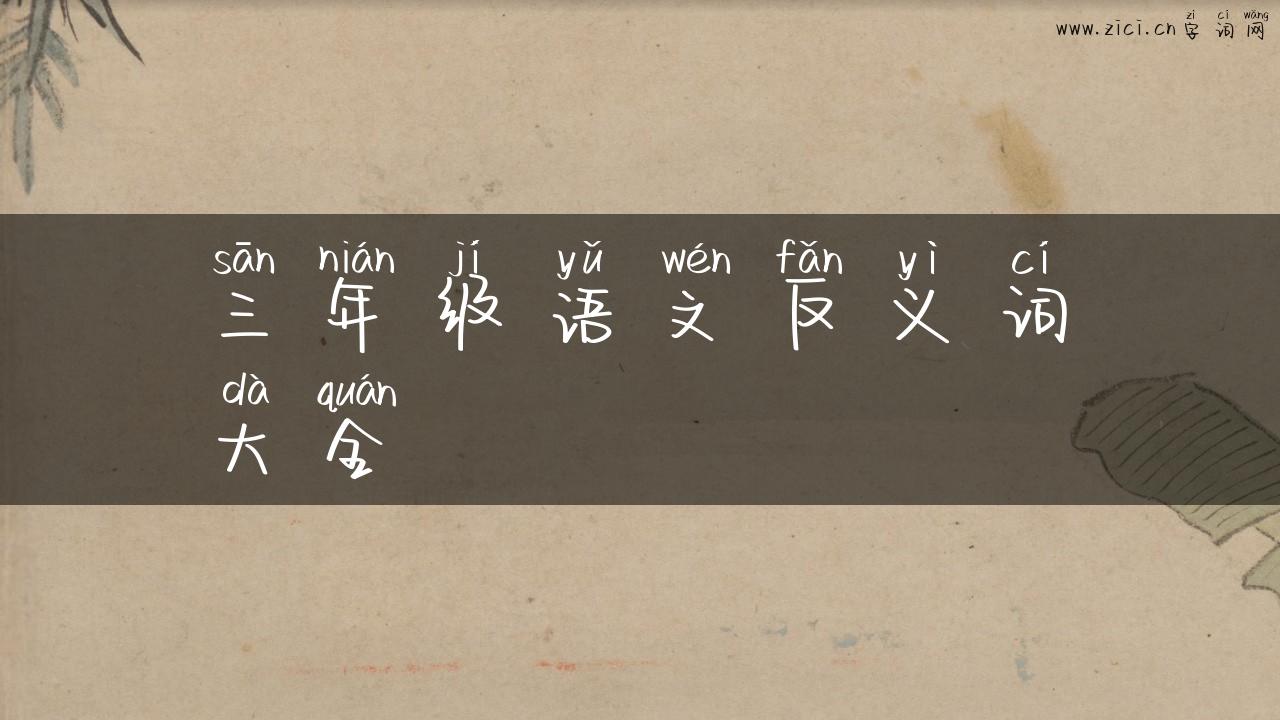 zì cí wǎng
www.zici.cn 字词网
sān nián jí yǔ wén fǎn yì cí
三年级语文反义词
dà quán
大全